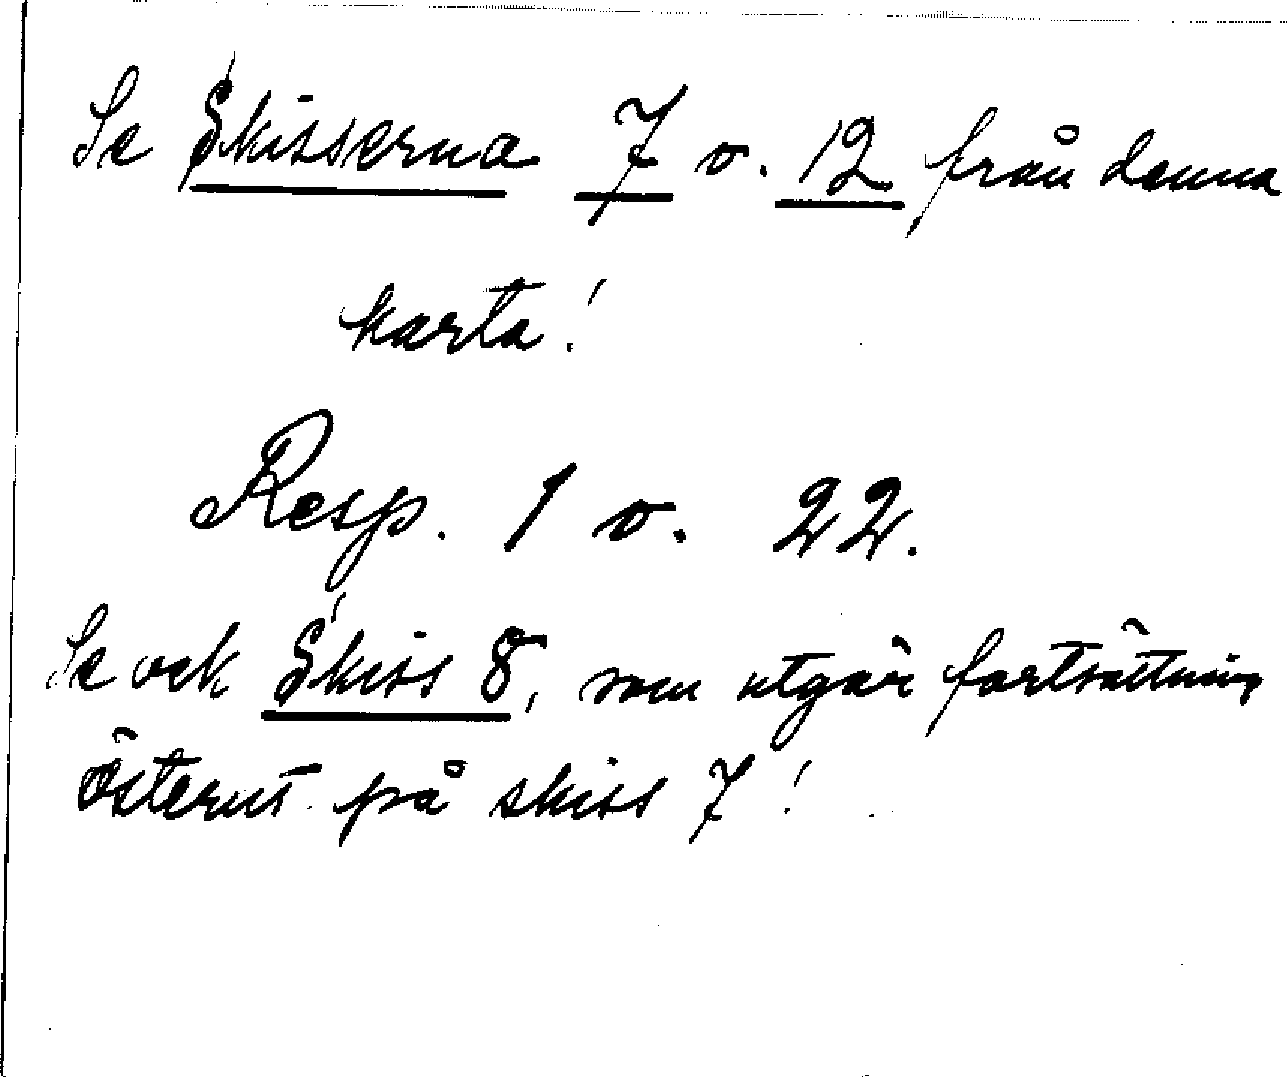 Se Skisserna 7 o. 12 från denna
karta!
Resp. 1 o. 22.
Se ock Skiss 8, som utgör fortsättning
österut på skiss 7!